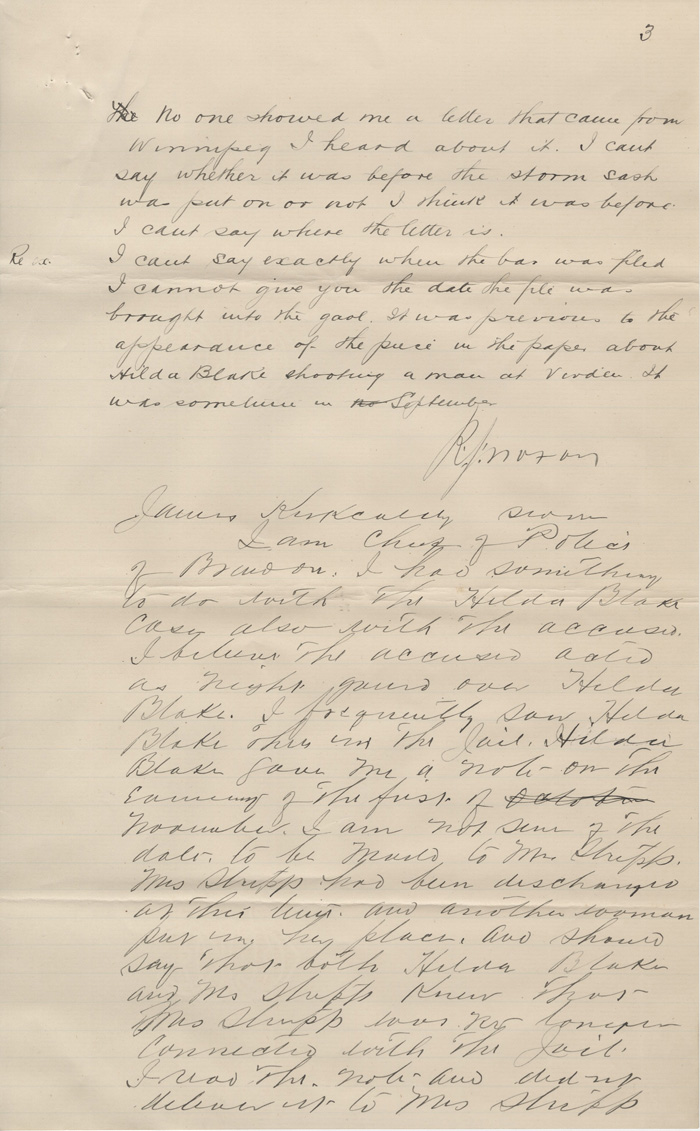 3
the No one showed me a letter that came from
Winnipeg I heard about it. I cant
say whether it was before the storm sash
was put on or not I think it was before.
I cant say where the letter is.
Re ex. I cant say exactly when the bar was filed
I cannot give you the date the file was
brought into the gaol. It was previous to the
appearance of the piece in the paper about
Hilda Blake shooting a man at Virden It
was sometime in no September
R.J. Noxon
James Kirkcaldy sworn
I am Chief of Police
of Brandon. I had something
to do with the Hilda Blake
Case also with the accused.
I believe the accused acted
as night guard over Hilda
Blake. I frequently saw Hilda
Blake then in the Jail. Hilda
Blake gave me a note on the
Evening of the first of October
November. I am not sure of the
date. to be Mailed to Mrs Stripp.
Mrs Stripp had been discharged
at this time. and another woman
put in her place. And should
say that both Hilda Blake
and Ms Stripp Knew that
Mrs Stripp was no longer
Connected with the Jail.
I read the note and did not
deliver it to Mrs Stripp